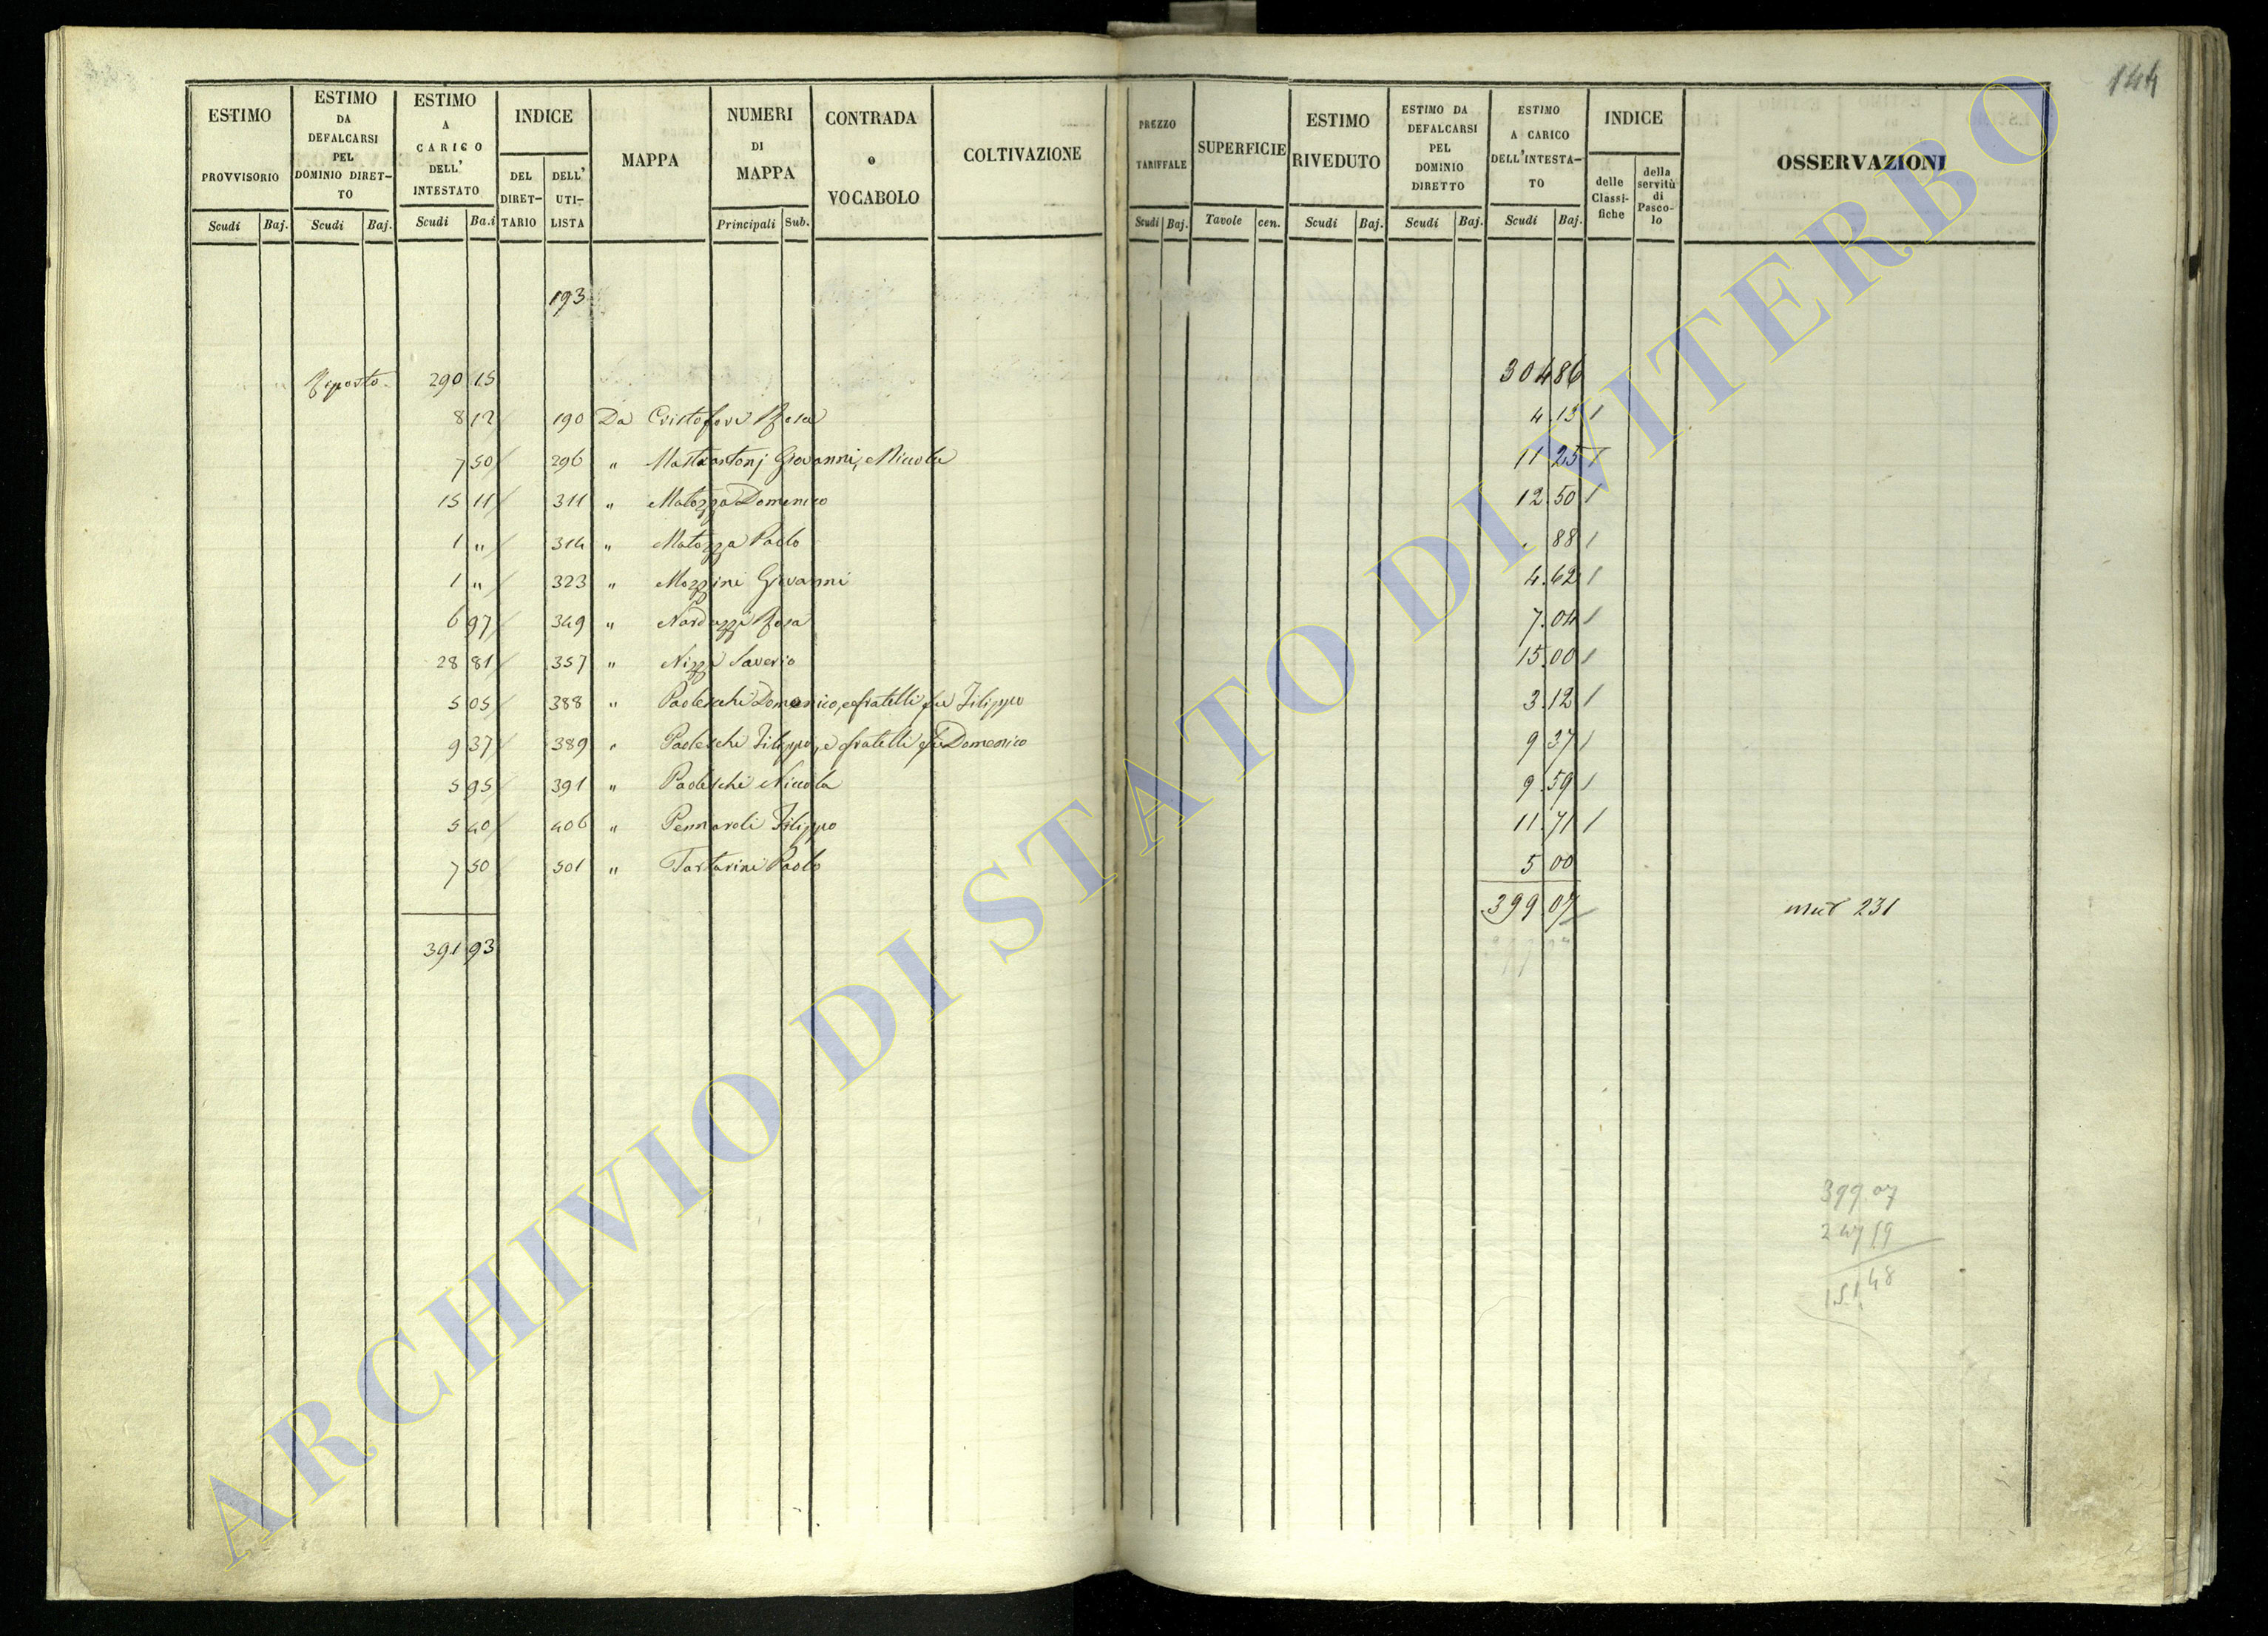 144
ESTIMO PROVVISORIO Scudi Baj.
ESTIMO DA DEFALCARSI PEL DOMINIO DIRET-TO Scudi Baj.
ESTIMO A CARICO DELL' INTESTATO Scudi Ba.i
INDICE DEL DIRET-TARIO DELL' UTI-LISTA
MAPPA
NUMERI DI MAPPA Principali Sub.
CONTRADA o VOCABOLO
COLTIVAZIONE
PREZZO TARIFFALE Scudi Baj.
SUPERFICIE Tavole cen.
ESTIMO RIVEDUTO Scudi Baj.
ESTIMO DA DEFALCARSI PEL DOMINIO DIRETTO Scudi Baj.
ESTIMO A CARICO DELL'INTESTA-TO Scudi Baj.
INDICE delle Classi-fiche della servitù di Pasco-lo
OSSERVAZIONI
193
Riporto. 290 15 304 86
8 12 190 Da Cristofori Rosa 4.13
7 50 296 " Mastrantonj Giovanni, e Niccola 11 25
15 11 311 " Matozza Domenico 12.50
1 " 314 " Matozza Paolo . 88
1 " 323 " Mozzini Giovanni 4.62
6 97 349 " Narduzzi Rosa 7.04
28 81 357 " Nizzi Saverio 15.00
5 05 388 " Paoleschi Domenico, e fratelli fu Filippo 3.12
9 37 389 " Paoleschi Filippo, e fratelli fu Domenico 9 37
5 95 391 " Paoleschi Niccola 9.59
5 40 406 " Pennaroli Filippo 11.71
7 50 501 " Tartarini Paolo 5 00
391 93
399 07 mut 231
399.07
247 59
151.48
ARCHIVIO DI STATO DI VITERBO